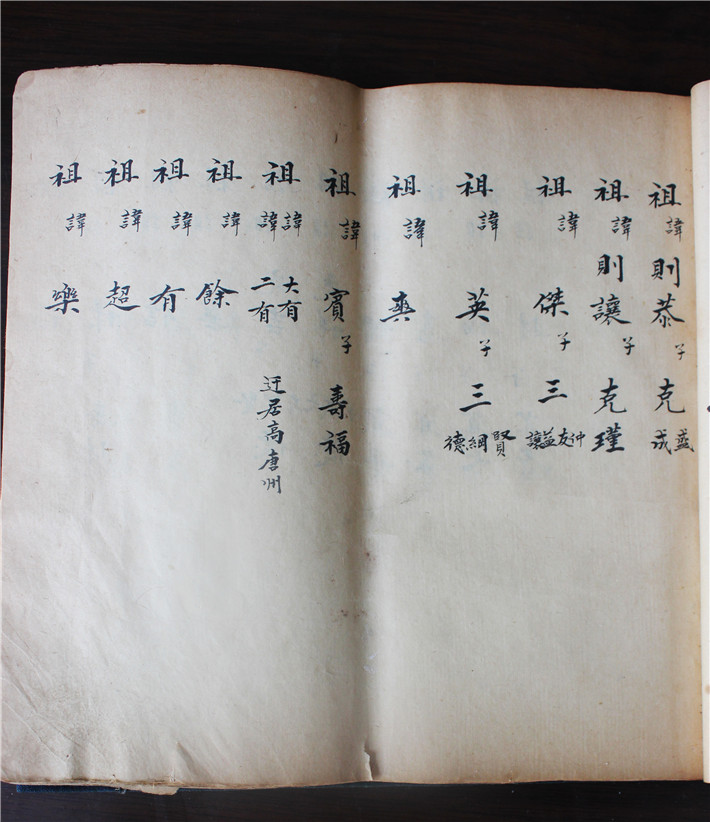 祖諱則恭子克盛成
祖諱則讓子克瑾
祖諱傑子三仲友益讓
祖諱英子三賢綱德
祖諱爽
祖諱賓子壽福
祖諱大有諱二有迁居高唐州
祖諱餘
祖諱有
祖諱超
祖諱樂